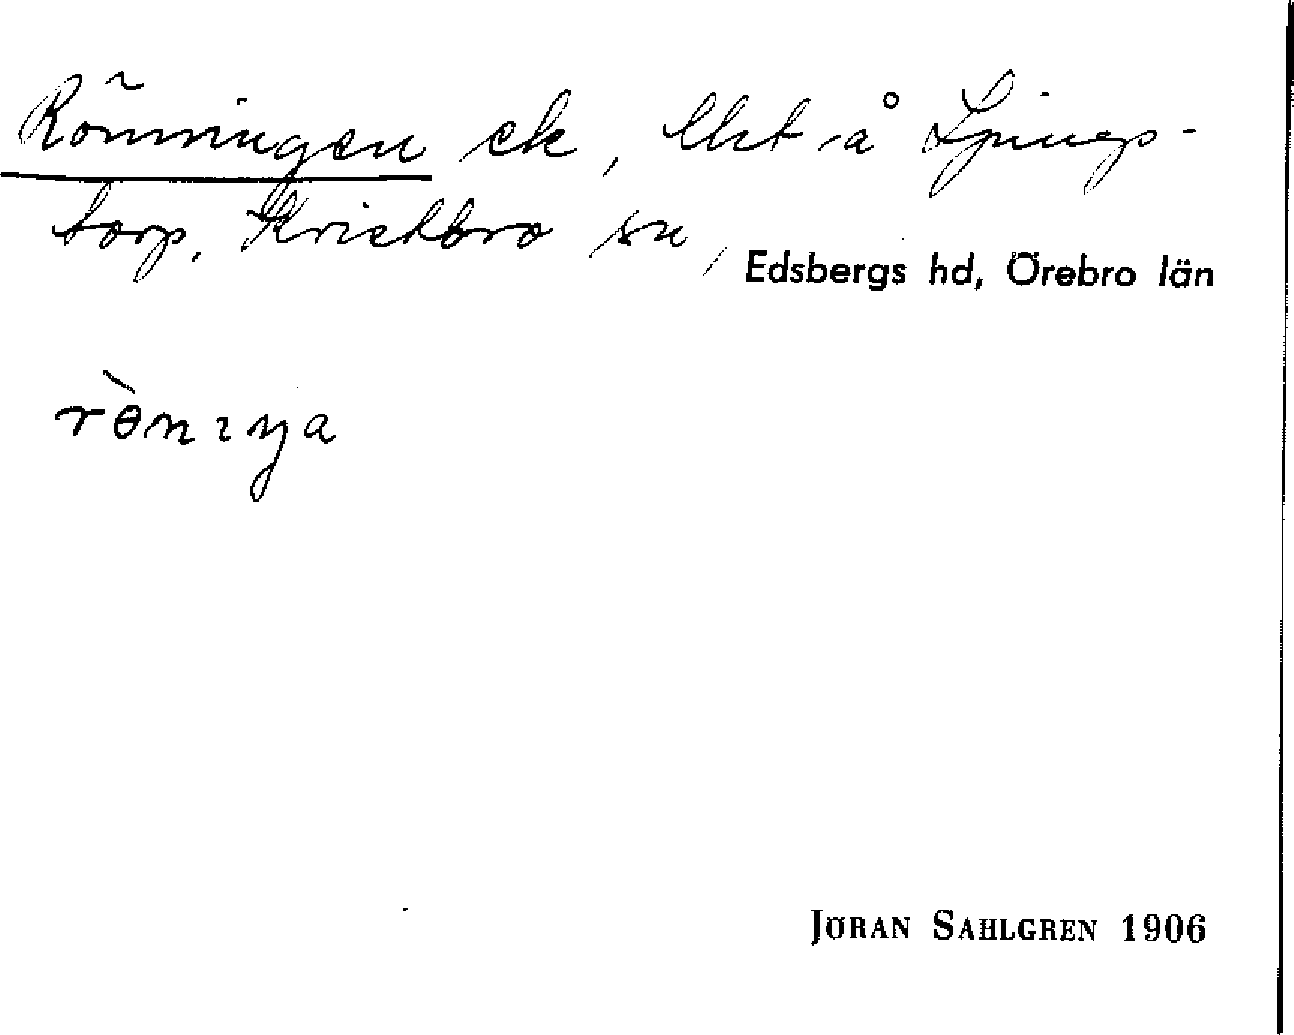 Rönningen ck, lht å Ljungs-
torp, Knistbro sn, Edsbergs hd, Örebro län
rὸnıŋa
JÖRAN SAHLGREN 1906